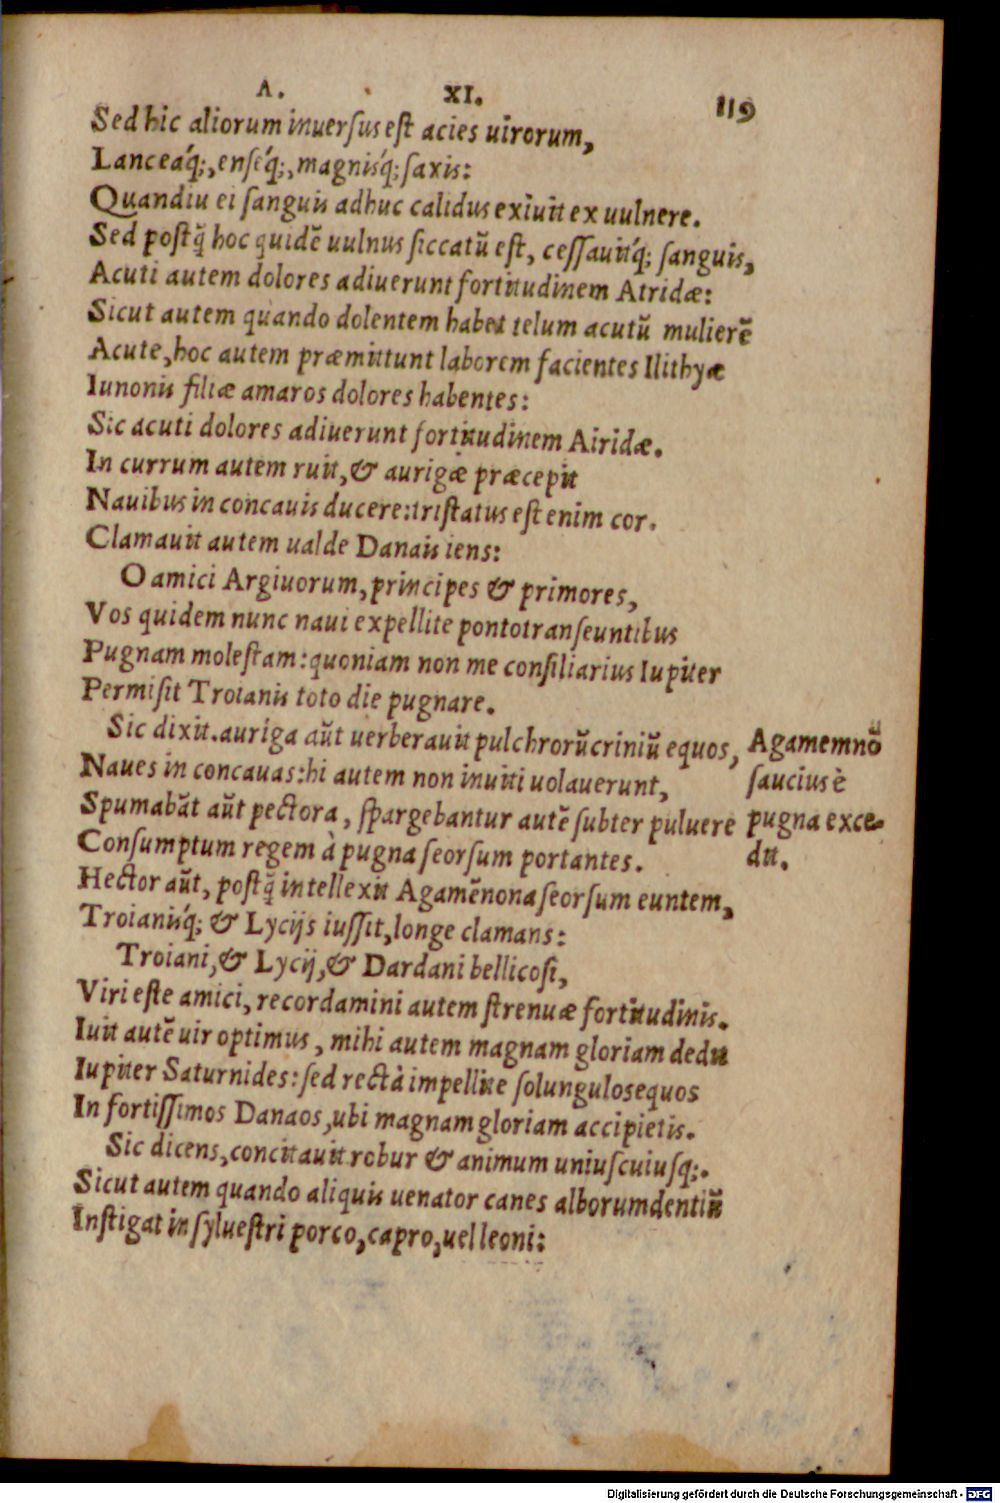 Λ. XI. 119
Sed hic aliorum inuersus est acies uirorum,
Lanceáq́;, enseq́;, magnisq́; saxis:
Quandiu ei sanguis adhuc calidus exiuit ex uulnere.
Sed postq̃ hoc quidē uulnus siccatū est, cessauitq́; sanguis,
Acuti autem dolores adiuerunt fortitudinem Atridæ:
Sicut autem quando dolentem habet telum acutū mulierē
Acute, hoc autem præmittunt laborem facientes Ilithyæ
Iunonis filiæ amaros dolores habentes:
Sic acuti dolores adiuerunt fortitudinem Airidæ.
In currum autem ruit, & aurigæ præcepit
Nauibus in concauis ducere: tristatus est enim cor.
Clamauit autem ualde Danais iens:
O amici Argiuorum, principes & primores,
Vos quidem nunc naui expellite pontotranseuntibus
Pugnam molestam: quoniam non me consiliarius Iupiter
Permisit Troianis toto die pugnare.
Sic dixit. auriga aūt uerberauit pulchrorū criniū equos,
Naues in concauas: hi autem non inuiti uolauerunt,
Spumabāt aūt pectora, spargebantur autē subter puluere
Consumptum regem à pugna seorsum portantes.
Hector aūt, postq̃ intellexit Agamēnona seorsum euntem,
Troianisq́; & Lycijs iussit, longe clamans:
Troiani, & Lycij, & Dardani bellicosi,
Viri este amici, recordamini autem strenuæ fortitudinis.
Iuit autē uir optimus, mihi autem magnam gloriam dedit
Iupiter Saturnides: sed rectà impellite solungulos equos
In fortissimos Danaos, ubi magnam gloriam accipietis.
Sic dicens, concitauit robur & animum uniuscuiusq;.
Sicut autem quando aliquis uenator canes alborum dentiū
Instigat in syluestri porco, capro, uel leoni:
Agamemnō
saucius è
pugna exce-
dit.
Digitalisierung gefördert durch die Deutsche Forschungsgemeinschaft - DFG